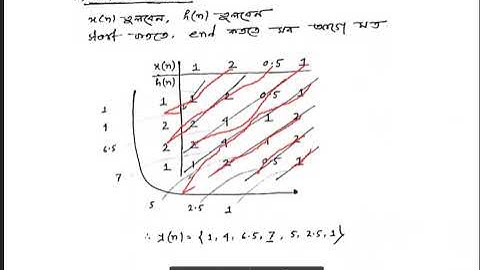 x(n) তুলবেন, h(n) তুলবেন
start করতে, end করতে সব আগের মত
x(n) 1 2 0.5 1
h(n)
1 1 2 0.5 1
2 2 4 1 2
2 2 4 1 2
1 1 2 0.5 1
1
4
6.5
7
5 2.5 1
∴ y(n) = { 1, 4, 6.5, 7, 5, 2.5, 1 }